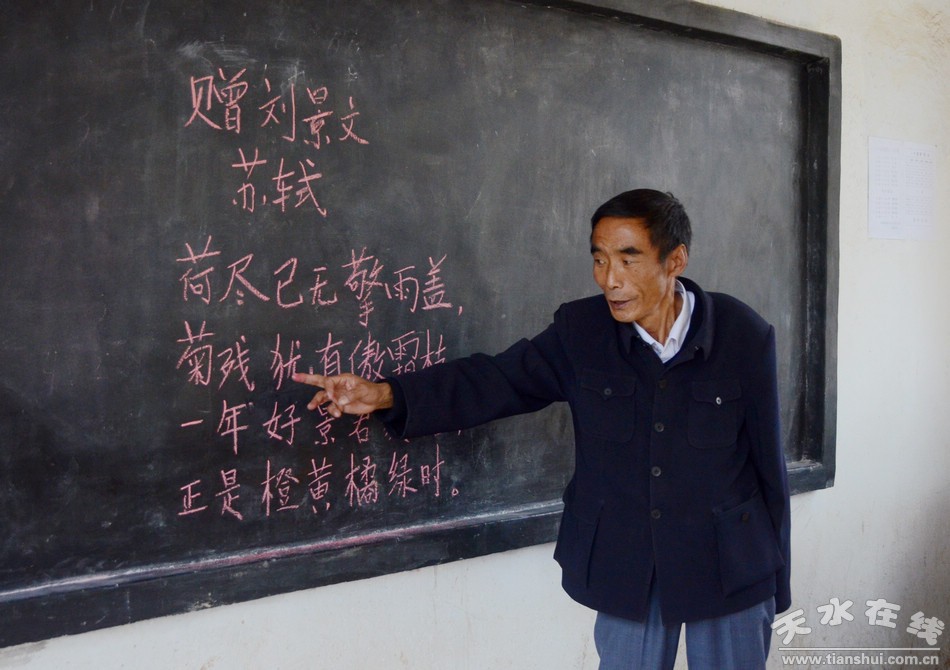 赠刘景文
苏轼
荷尽已无擎雨盖，
菊残犹有傲霜枝
一年好景君
正是橙黄橘绿时。
天水在线
www.tianshui.com.cn